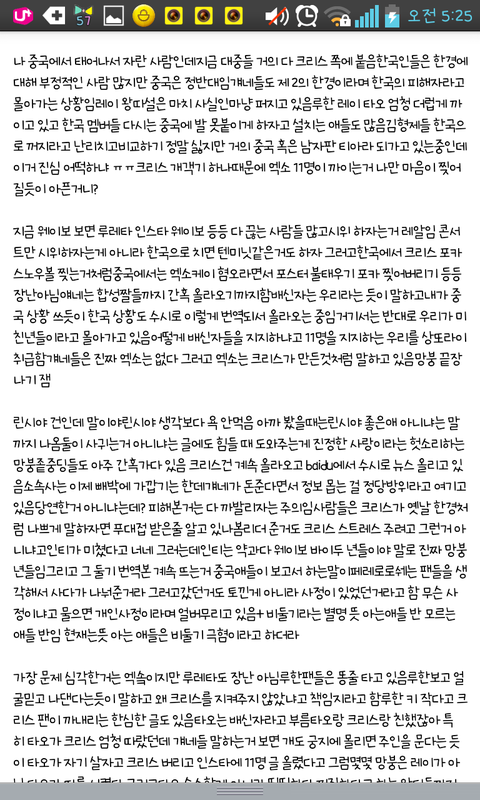 57
오전 5:25
나 중국에서 태어나서 자란 사람인데지금 대중들 거의 다 크리스 쪽에 붙음한국인들은 한경에
대해 부정적인 사람 많지만 중국은 정반대임걔네들도 제 2의 한경이라며 한국의 피해자라고
몰아가는 상황임레이 왕따설은 마치 사실인마냥 퍼지고 있음루한 레이 타오 엄청 더럽게 까
이고 있고 한국 멤버들 다시는 중국에 발 못붙이게 하자고 설치는 애들도 많음김형제들 한국으
로 꺼지라고 난리치고비교하기 정말 싫지만 거의 중국 혹은 남자판 티아라 되가고 있는중인데
이거 진심 어떡하냐 ㅠㅠ크리스 개객기 하나때문에 엑소 11명이 까이는거 나만 마음이 찢어
질듯이 아픈거니?
지금 웨이보 보면 루레타 인스타 웨이보 등등 다 끊는 사람들 많고시위 하자는거 레알임 콘서
트만 시위하자는게 아니라 한국으로 치면 텐미닛같은거도 하자 그러고한국에서 크리스 포카
스노우볼 찢는거처럼중국에서는 엑소케이 혐오라면서 포스터 불태우기 포카 찢어버리기 등등
장난아님얘네는 합성짤들까지 간혹 올라오기까지함배신자는 우리라는 듯이 말하고내가 중
국 상황 쓰듯이 한국 상황도 수시로 이렇게 번역되서 올라오는 중임거기서는 반대로 우리가 미
친년들이라고 몰아가고 있음어떻게 배신자들을 지지하냐고 11명을 지지하는 우리를 상또라이
취급함걔네들은 진짜 엑소는 없다 그러고 엑소는 크리스가 만든것처럼 말하고 있음망붕 끝장
나기 잼
린시야 건인데 말이야린시야 생각보다 욕 안먹음 아까 봤을때는린시야 좋은애 아니냐는 말
까지 나옴둘이 사귀는거 아니냐는 글에도 힘들 때 도와주는게 진정한 사랑이라는 헛소리하는
망붕좉중딩들도 아주 간혹가다 있음 크리스건 계속 올라오고 baidu에서 수시로 뉴스 올리고 있
음소속사는 이제 빼박에 가깝기는 한데걔네가 돈준다면서 정보 뫕는 걸 정당방위라고 여기고
있음당연한거 아니냐는데? 피해본거는 다 까발리자는 주의임사람들은 크리스가 옛날 한경처
럼 나쁘게 말하자면 푸대접 받은줄 알고 있나봄리더 준거도 크리스 스트레스 주려고 그런거 아
니냐고인티가 미쳤다고 너네 그러는데인티는 약과다 웨이보 바이두 년들이야 말로 진짜 망붕
년들임그리고 그 둘기 번역본 계속 뜨는거 중국애들이 보고서 하는말이페레로로쉐는 팬들을 생
각해서 사다가 나눠준거라 그러고갔던거도 토낀게 아니라 사정이 있었던거라고 함 무슨 사
정이냐고 물으면 개인사정이라며 얼버무리고 있음+ 비둘기라는 별명 뜻 아는애들 반 모르는
애들 반임 현재는뜻 아는 애들은 비둘기 극혐이라고 하더라
가장 문제 심각한거는 엑솤이지만 루레타도 장난 아님루한팬들은 똥줄 타고 있음루한보고 얼
굴믿고 나댄다는듯이 말하고 왜 크리스를 지켜주지 않았냐고 책임지라고 함루한 키 작다고 크
리스 팬이 까내리는 한심한 글도 있음타오는 배신자라고 부름타오랑 크리스랑 친했잖아 특
히 타오가 크리스 엄청 따랐던데 걔네들 말하는거 보면 개도 궁지에 몰리면 주인을 문다는 듯
이 타오가 자기 살자고 크리스 버리고 인스타에 11명 글 올렸다고 그럼몇몇 망붕은 레이가 아